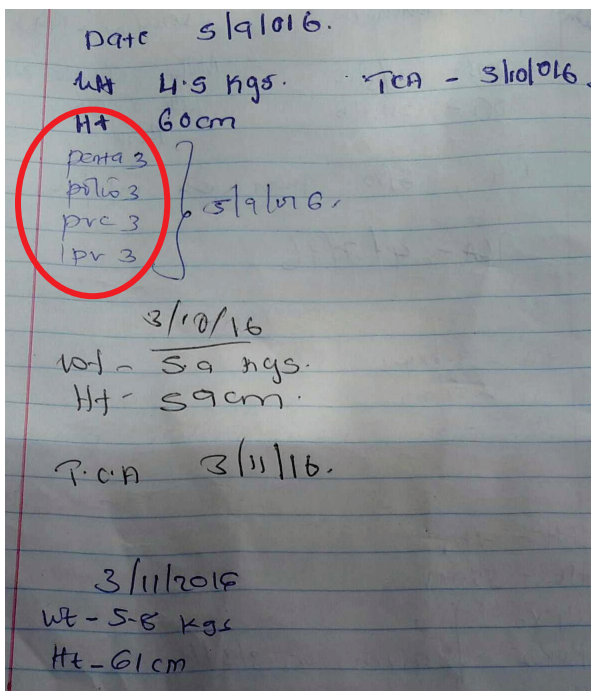 Date 5/9/016.
Wt 4.5 Kgs. TCA - 3/10/016.
Ht 60cm
penta 3
polio 3
pvc 3
Ipv 3
5/9/016.
3/10/16
Wt - 5.9 kgs.
Ht - 59cm.
T.C.A 3/11/16.
3/11/2016
Wt - 5.8 Kgs
Ht - 61 cm